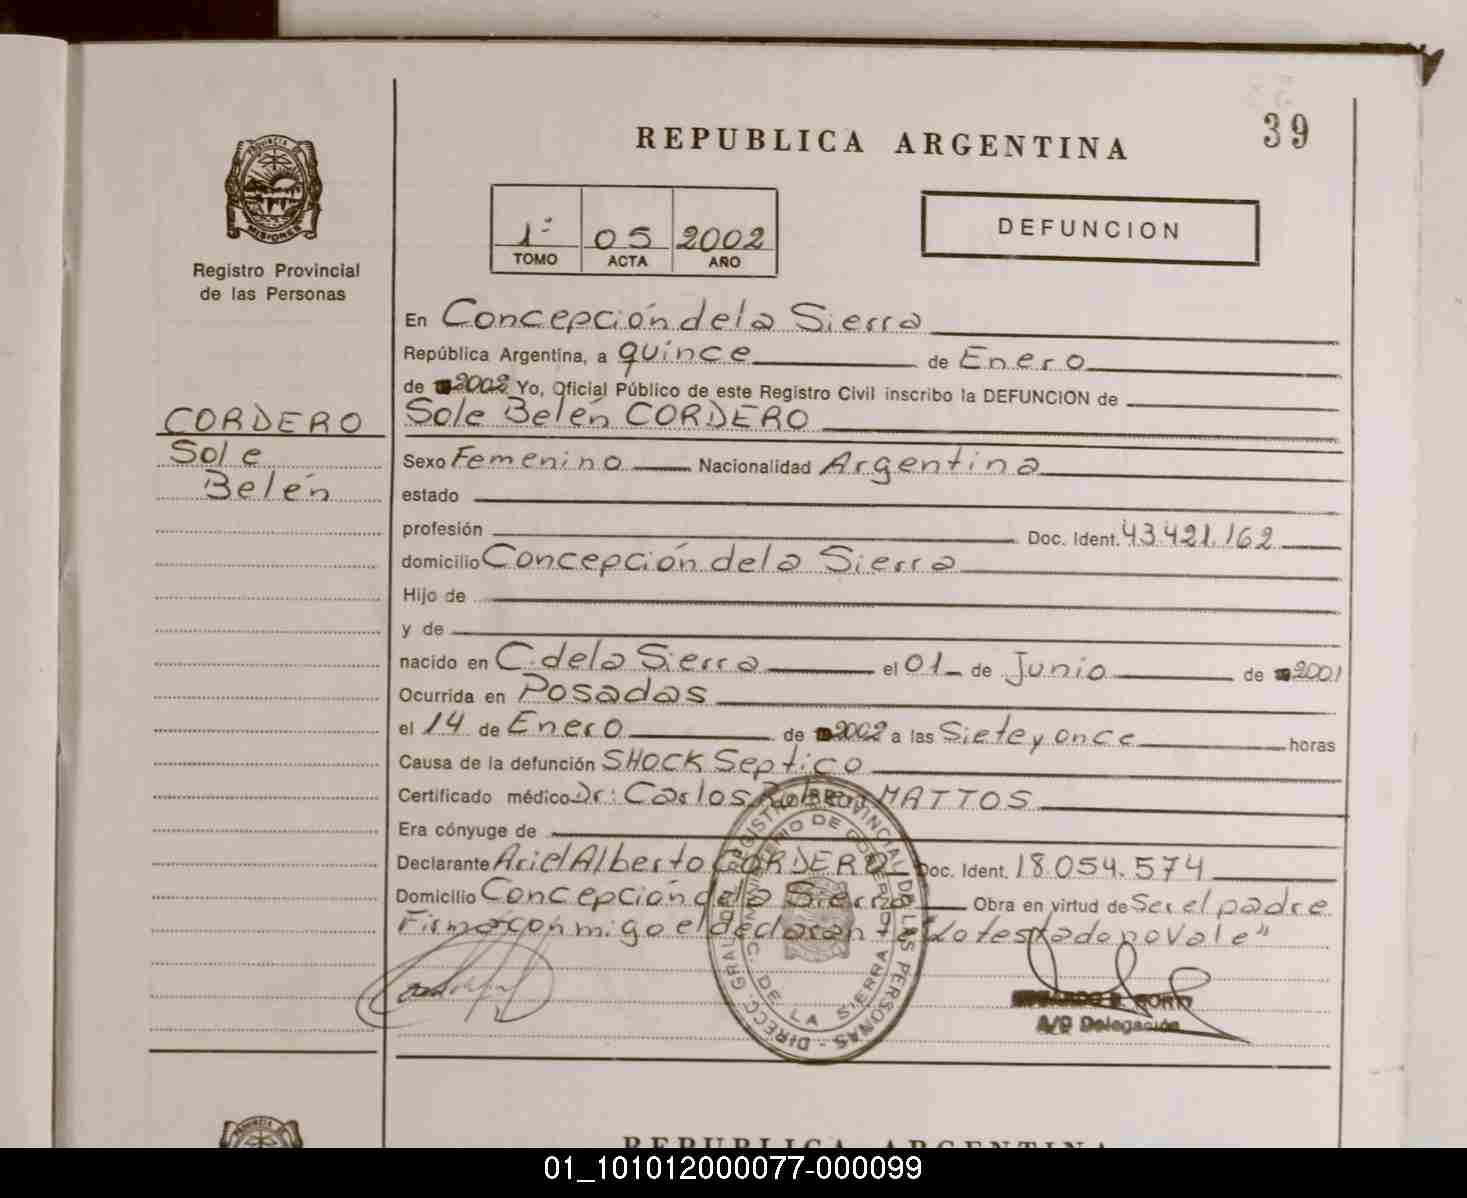 39
REPUBLICA ARGENTINA
PROVINCIA DE MISIONES
Registro Provincial
de las Personas
1º 05 2002
TOMO ACTA AÑO
DEFUNCION
En Concepción de la Sierra
República Argentina, a quince de Enero
de 2002 Yo, Oficial Público de este Registro Civil inscribo la DEFUNCION de
CORDERO
Sole
Belén
Sole Belén CORDERO
Sexo Femenino Nacionalidad Argentina
estado
profesión Doc. Ident. 43.421.162
domicilio Concepción de la Sierra
Hijo de
y de
nacido en C. de la Sierra el 01 de Junio de 2001
Ocurrida en Posadas
el 14 de Enero de 2002 a las Siete y once horas
Causa de la defunción SHOCK Septico
Certificado médico Dr: Carlos MATTOS
Era cónyuge de
Declarante Ariel Alberto CORDERO Doc. Ident. 18.054.574
Domicilio Concepción de la Sierra Obra en virtud de Ser el padre
Firma conmigo el declarante "Lo testado no vale"
DIRECC. GRAL. REGISTRO PROVINCIAL DE LAS PERSONAS
MINISTERIO DE GOBIERNO
C. DE LA SIERRA
A/C Delegación
REPUBLICA ARGENTINA
01_101012000077-000099